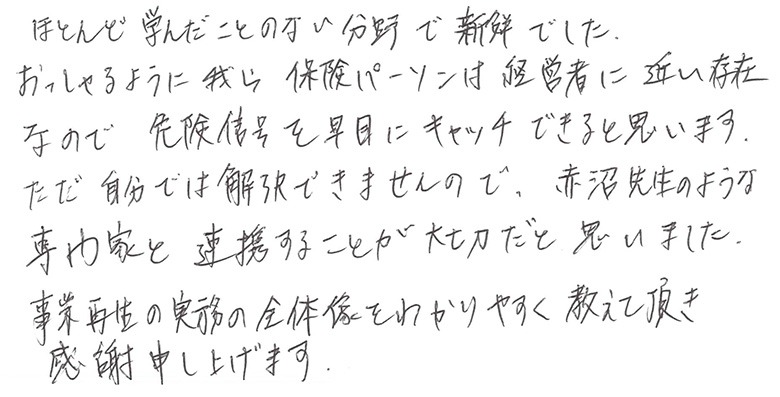 ほとんど学んだことのない分野で新鮮でした.
おっしゃるように我ら保険パーソンは経営者に近い存在
なので危険信号を早目にキャッチできると思います.
ただ自分では解決できませんので、赤沼先生のような
専門家と連携することが大切だと思いました.
事業再生の実務の全体像をわかりやすく教えて頂き
感謝申し上げます.